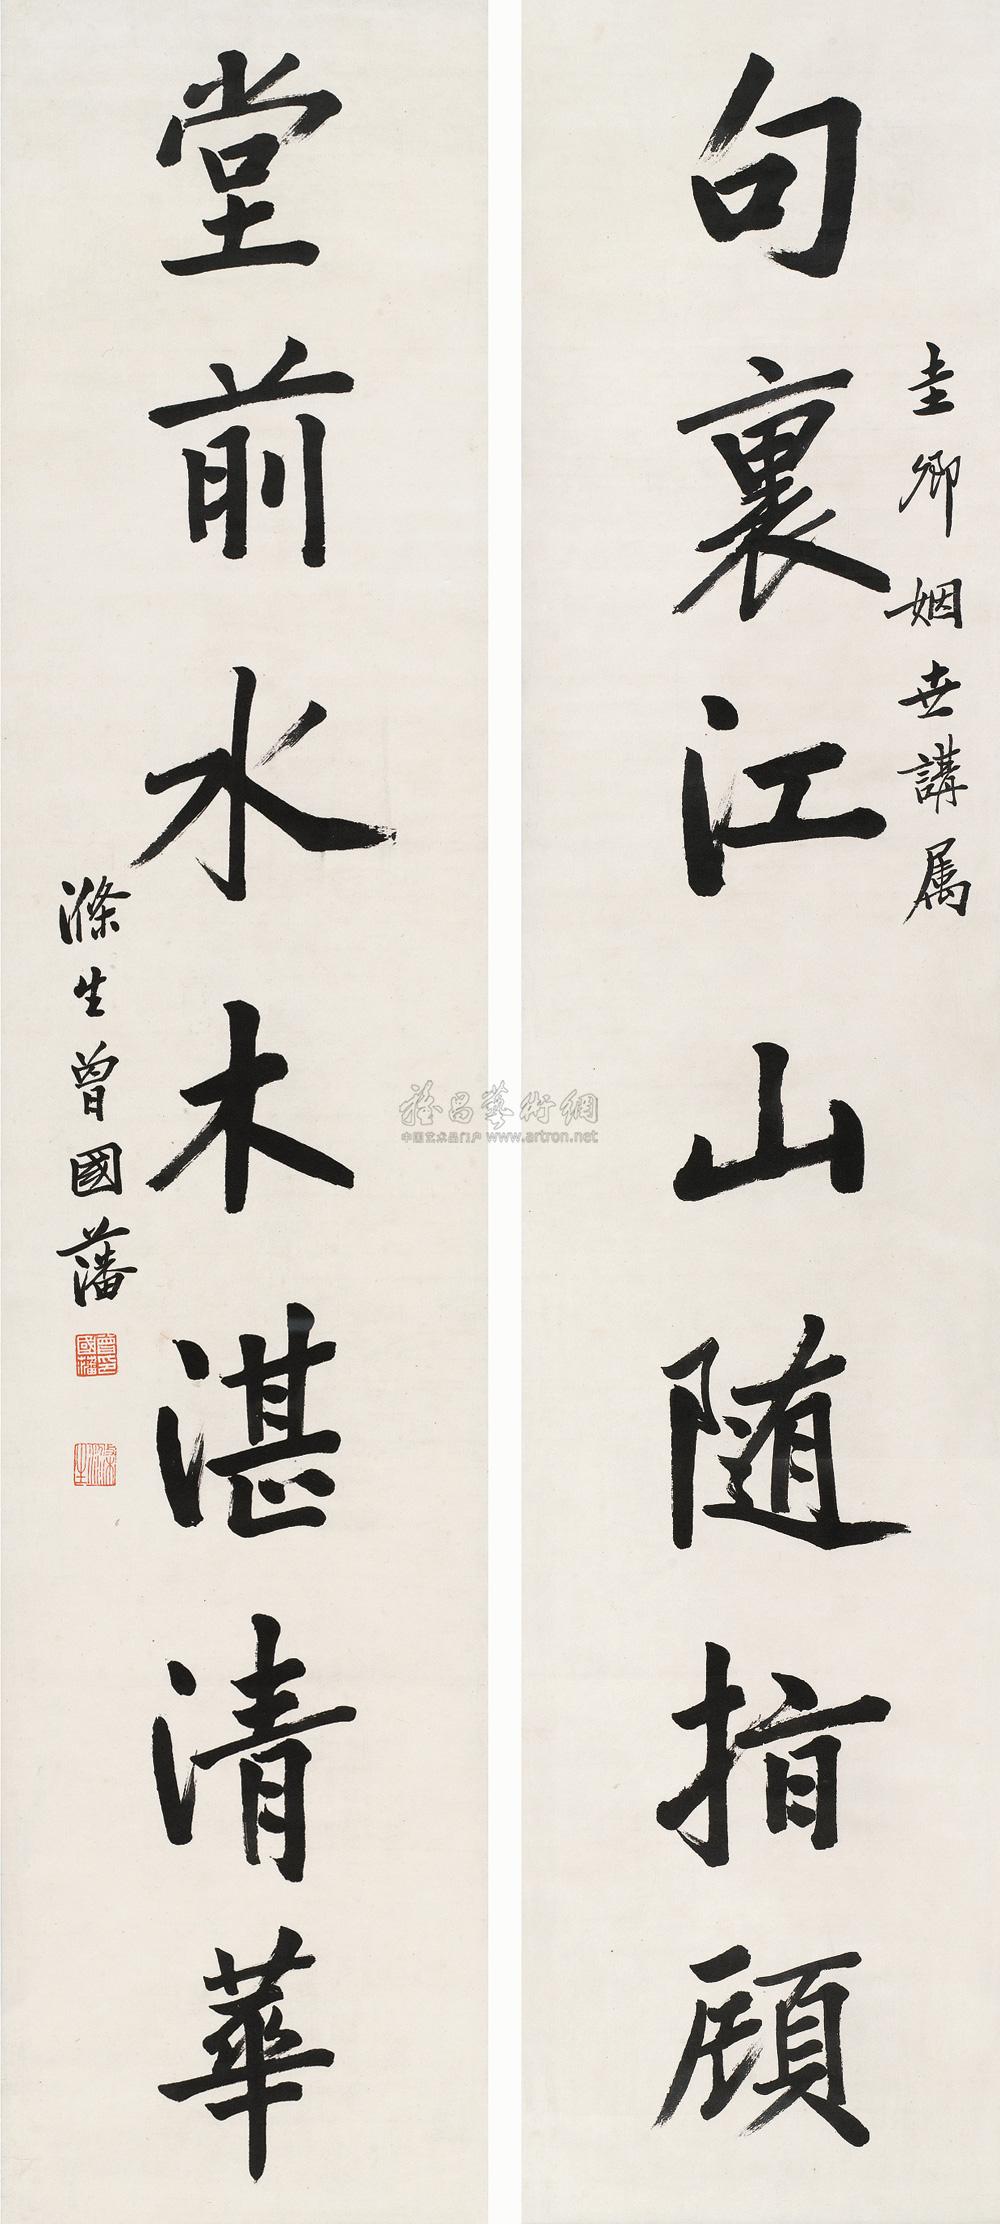 圭卿姻世講属
句裏江山随指顧
堂前水木湛清華
滌生曾國藩
曾國藩印
滌生
雅昌藝術網
中国艺术品门户 www.artron.net